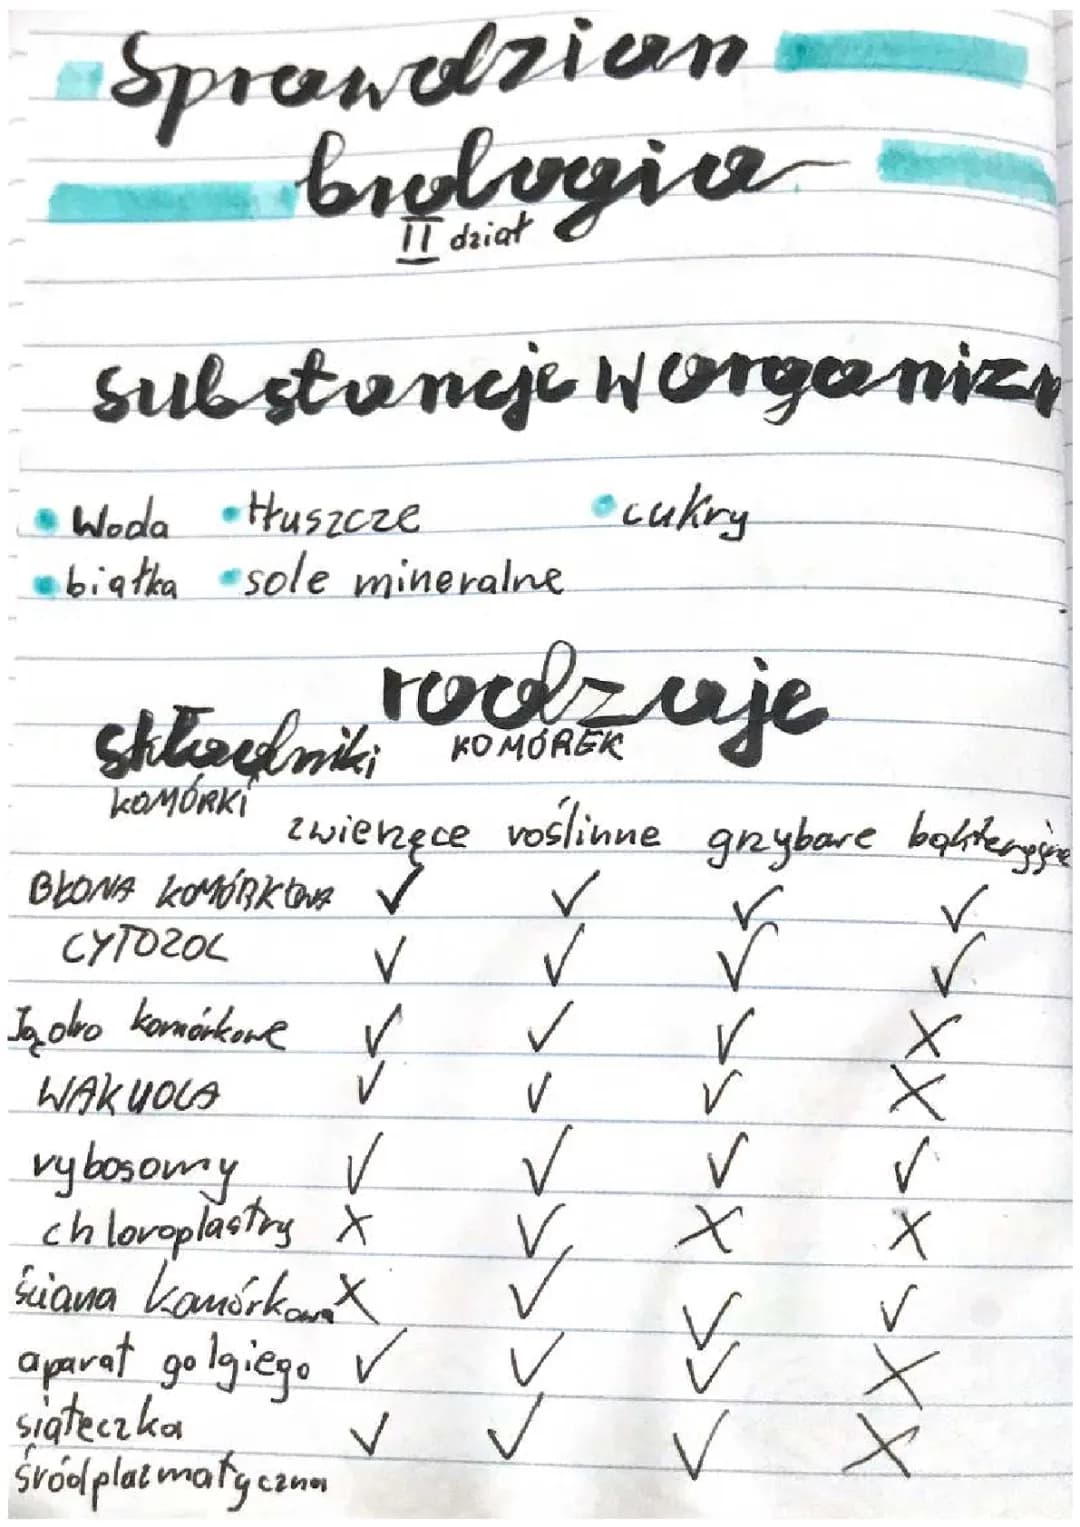 Sprawdzian
biologia
II dział
substancje w organizm
• Woda • tłuszcze • cukry
• białka • sole mineralne
rodzaje
składniki KOMÓREK
KOMÓRKI
zwierzęce roślinne grzybare bakteryjne
BŁONA KOMÓRKOWA ✓ ✓ ✓ ✓
CYTOZOL ✓ ✓ ✓ ✓
Jądro komórkowe ✓ ✓ ✓ X
WAKUOLA ✓ ✓ ✓ X
rybosomy ✓ ✓ ✓ ✓
chloroplastry X ✓ X X
ściana komórkowa X ✓ ✓ ✓
aparat golgiego ✓ ✓ ✓ X
siąteczka ✓ ✓ ✓ X
śródplazmatyczna